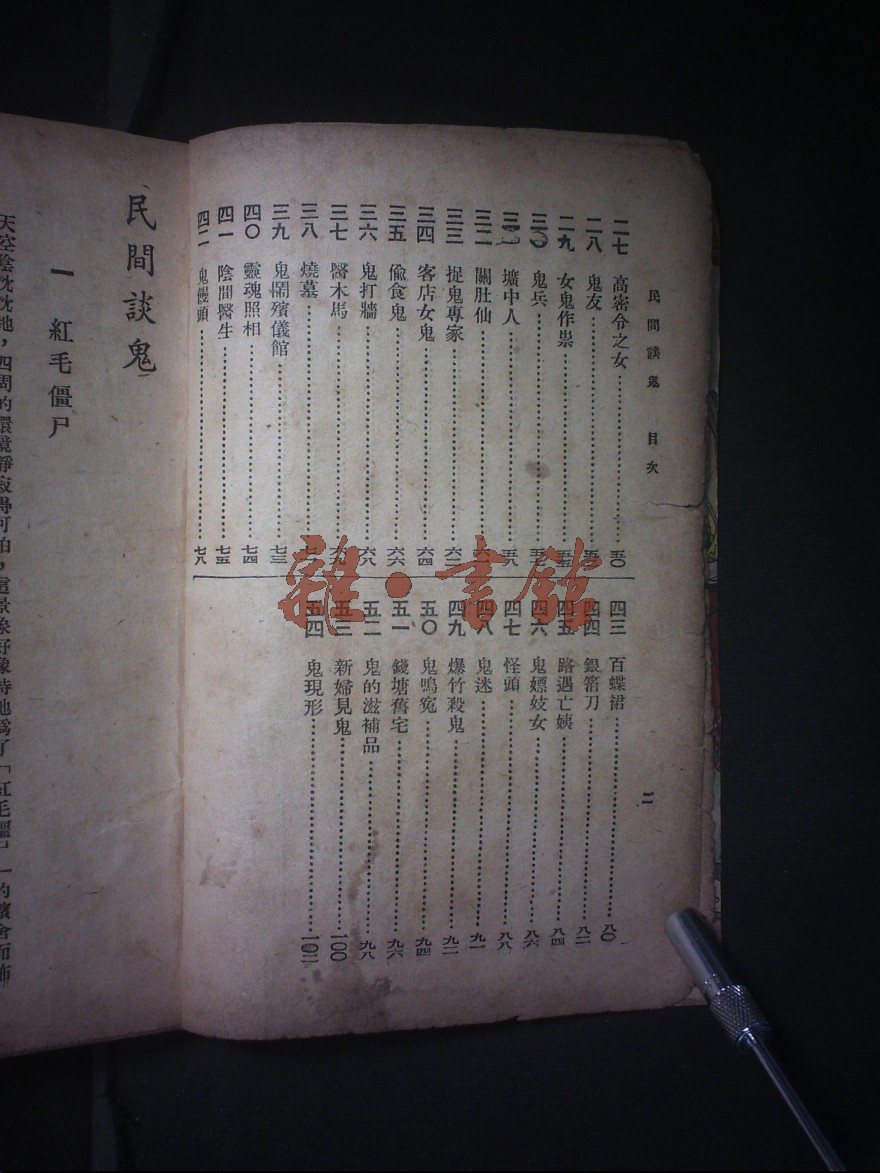 民間談鬼 目次
二七 高密令之女 五〇
二八 鬼友 五〇
二九 女鬼作祟 五五
三〇 鬼兵
三一 壙中人 五八
三二 關肚仙
三三 捉鬼專家 六二
三四 客店女鬼 六四
三五 偸食鬼 六六
三六 鬼打牆 六八
三七 醫木馬 六九
三八 燒墓
三九 鬼鬧殯儀館 七三
四〇 靈魂照相 七四
四一 陰間醫生 七五
四二 鬼饅頭 七八
四三 百蝶裙 八〇
四四 銀箔刀 八二
四五 路遇亡姨 八四
四六 鬼嫖妓女 八六
四七 怪頭 八八
四八 鬼迷 九一
四九 爆竹殺鬼 九二
五〇 鬼鳴寃 九四
五一 錢塘舊宅 九六
五二 鬼的滋補品 九八
五三 新婦見鬼 一〇〇
五四 鬼現形 一〇二
二
民間談鬼
一 紅毛僵尸
天空陰沈沈地，四周的環境靜寂得可怕，這景象好像特地爲了「紅毛僵尸」的
雜·書館